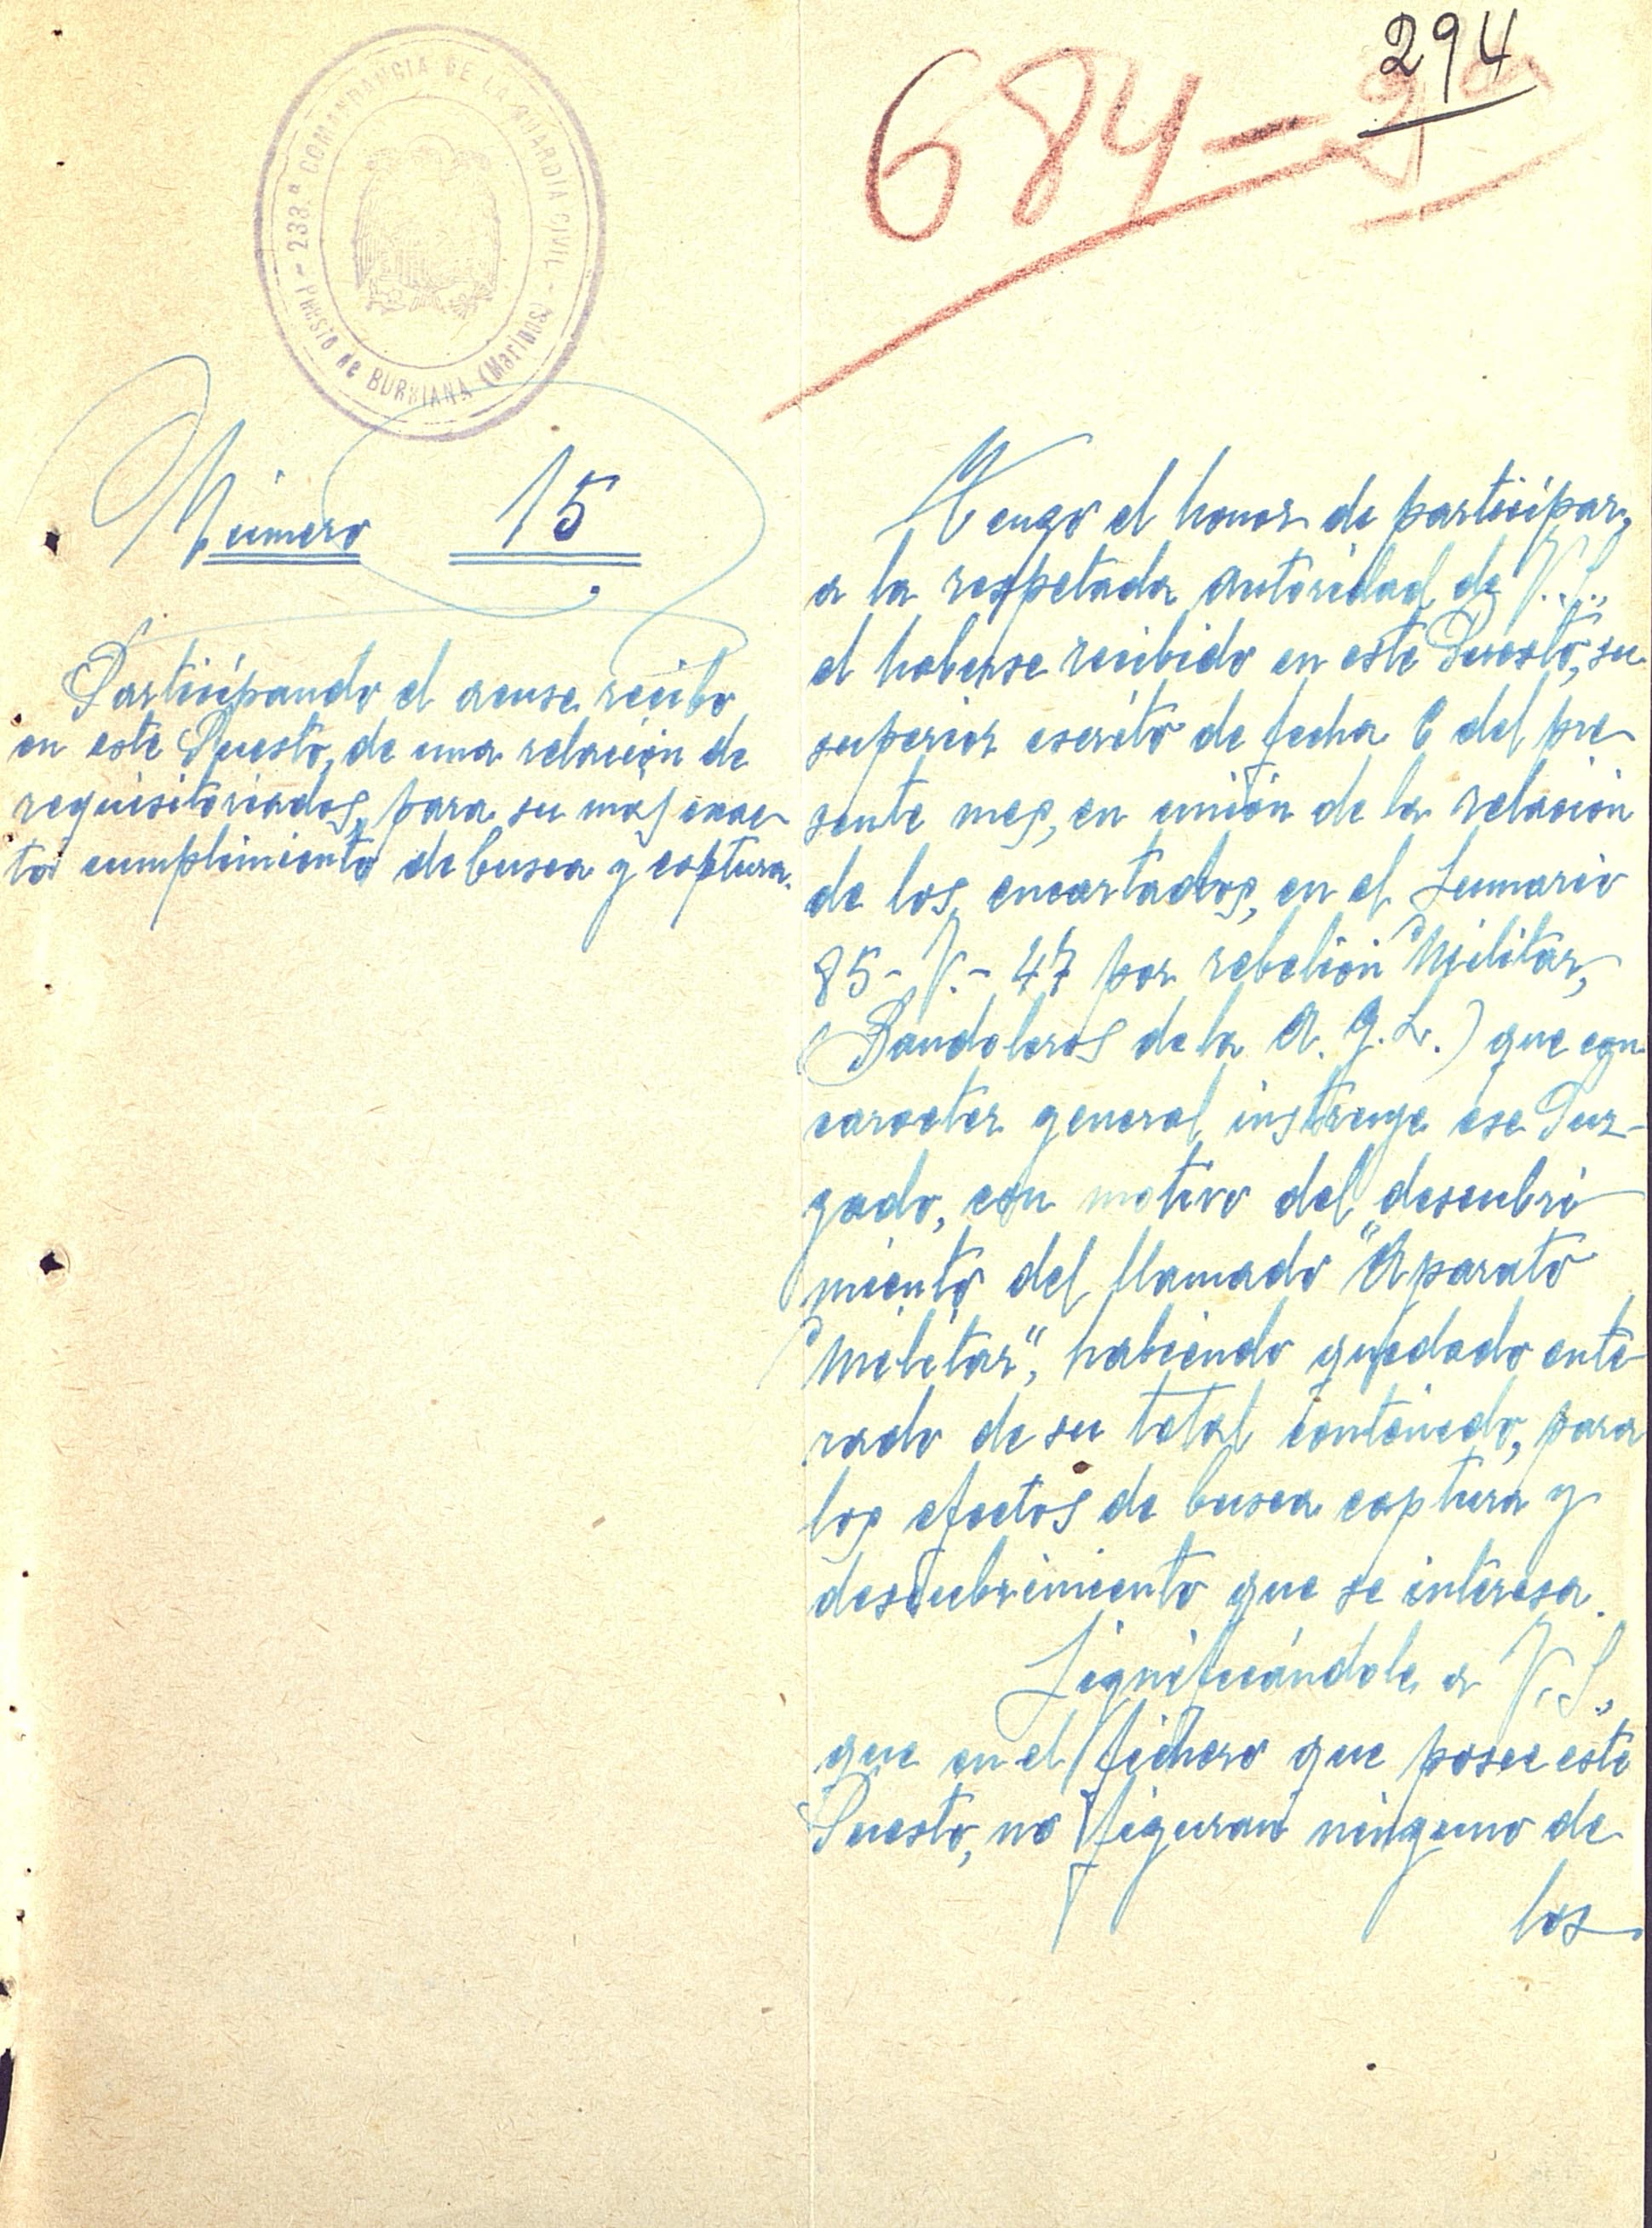 294
684-
233.ª COMANDANCIA DE LA GUARDIA CIVIL - Puesto de BURRIANA (Marinos)
Número 15
Participando el acuse recibo
en este Puesto, de una relación de
requisitoriados, para su mas exac-
to cumplimiento de busca y captura.
Tengo el honor de participar,
a la respetada autoridad de V.S.,
el haberse recibido en este Puesto, su
superior escrito de fecha 6 del pre-
sente mes, en unión de la relación
de los encartados, en el Sumario
85-V.-47 por rebelión Militar,
(Bandoleros de la A.G.L.) que con
caracter general instruye ese Juz-
gado, con motivo del descubri-
miento del llamado "Aparato
Militar", habiendo quedado ente-
rado de su total contenido, para
los efectos de busca captura y
descubrimiento que se interesa.
Significándole a V.S.,
que en el fichero que posee este
Puesto, no figuran ninguno de
los